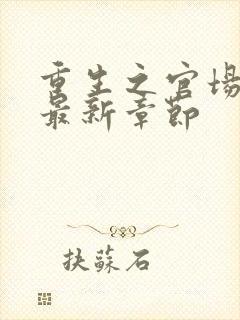 重生之官场
最新章节
扶蘇石